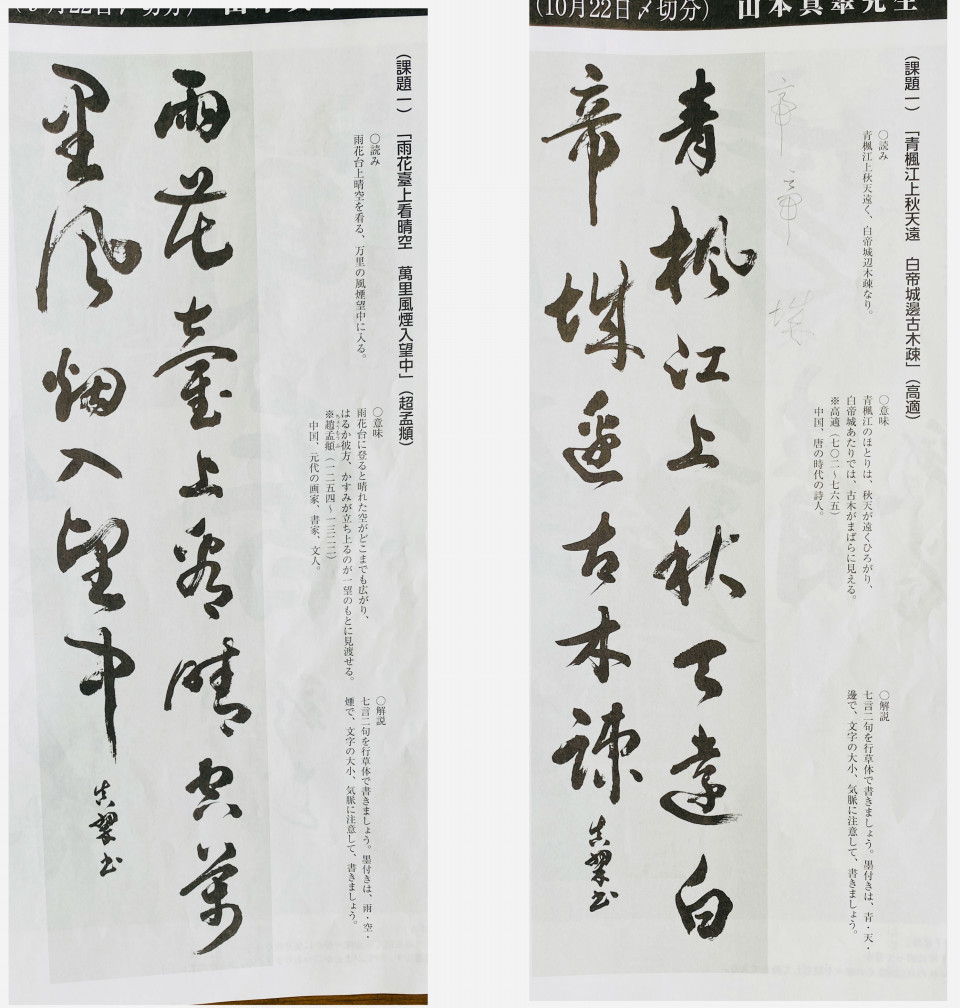 (10月22日〆切分) 山本真翠先生
(課題一) 「青楓江上秋天遠 白帝城邊古木疎」(高適)
○読み
青楓江上秋天遠く、白帝城辺木疎なり。
○意味
青楓江のほとりは、秋天が遠くひろがり、
白帝城あたりでは、古木がまばらに見える。
※高適(七〇二〜七六五)
中国、唐の時代の詩人。
○解説
七言二句を行草体で書きましょう。墨付きは、青・天・
邊で、文字の大小、気脈に注意して、書きましょう。
帝帝
城
青楓江上秋天遠白
帝城邊古木疎
真翠書
月22日〆切分)
(課題一) 「雨花臺上看晴空 萬里風煙入望中」(超孟頫)
○読み
雨花台上晴空を看る、万里の風煙望中に入る。
○意味
雨花台に登ると晴れた空がどこまでも広がり、
はるか彼方、かすみが立ち上るのが一望のもとに見渡せる。
※趙孟頫(一二五四〜一三二二)
中国、元代の画家、書家、文人。
○解説
七言二句を行草体で書きましょう。墨付きは、雨・空・
煙で、文字の大小、気脈に注意して、書きましょう。
雨花臺上看晴空萬
里風烟入望中
真翠書